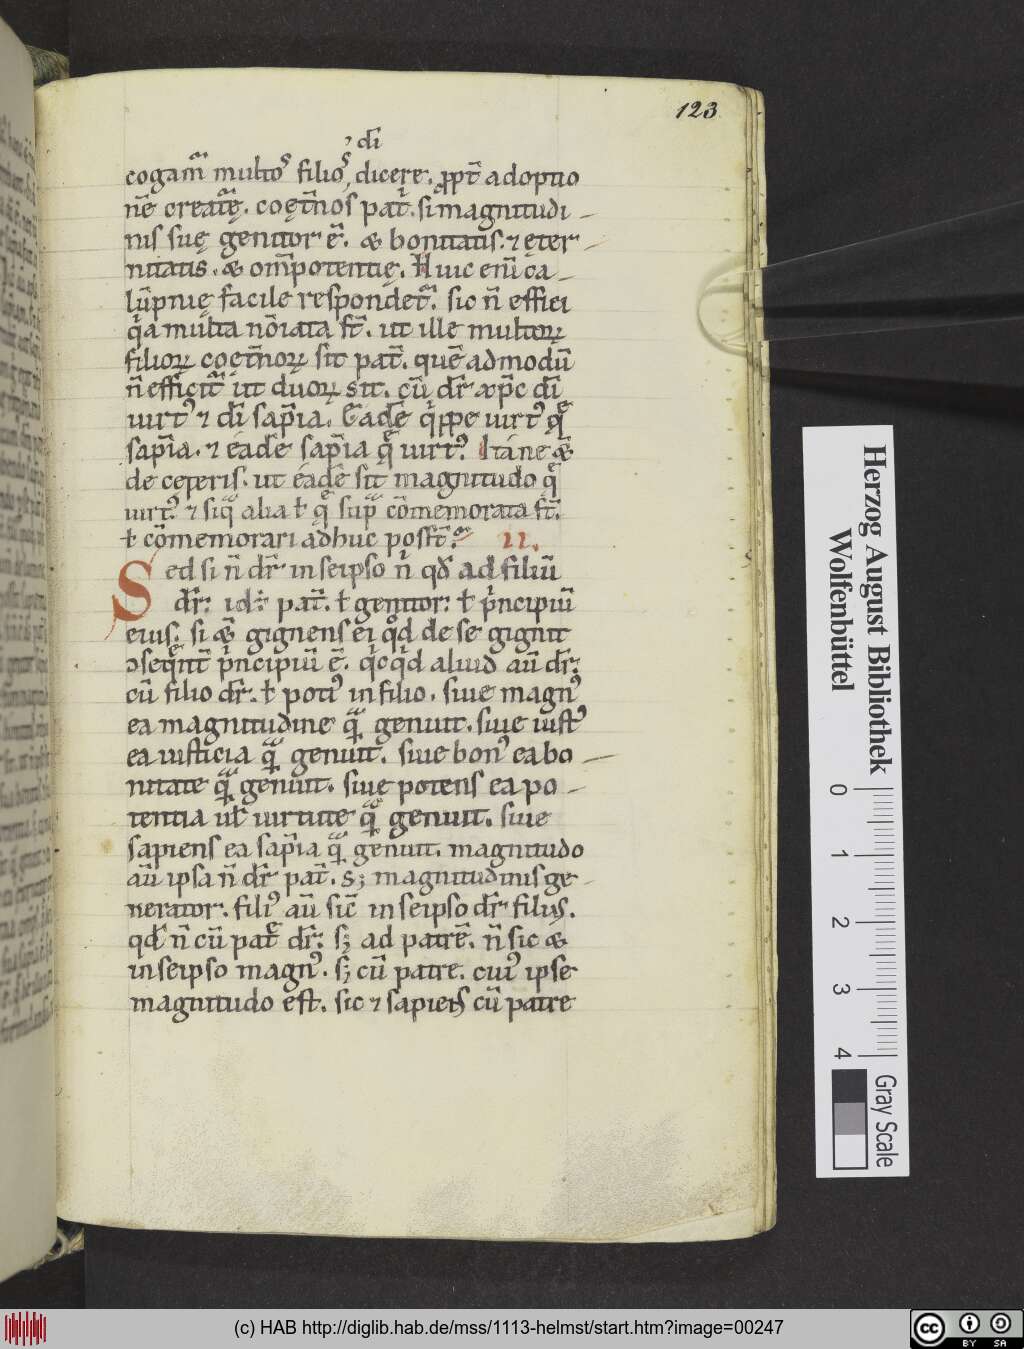 123
di
cogam̃ multos filios, dicere. ꝓpt̃ adoptio
nẽ creatę. coęt̃nos pat̃. si magnitudi-
nis suę genitor ẽ. & bonitatis. ⁊ ęter-
nitatis. & om̃potentię. Huic enĩ ca-
lũpnię facile respondet̃. sic ñ effici
q̃a multa nõiata st̃. ut ille multoꝝ
filioꝝ coęt̃noꝝ sit pat̃. quẽadmodũ
ñ efficit̃ ut duoꝝ sit. cũ dr̃ xp̃c dĩ
uirtꝰ ⁊ dĩ sap̃ia. Eadẽ q̃ppe uirtꝰ quę
sap̃ia. ⁊ eadẽ sap̃ia quę uirtꝰ. Itane &
de ceteris. ut eadẽ sit magnitudo quę
uirtꝰ. ⁊ siqua alia ł quę sup̃ cõmemorata st̃.
ł cõmemorari adhuc posst̃. II.
Sed si ñ dr̃ in seipso ñ qđ ad filiũ
dr̃. id÷ pat̃. ł genitor. ł p̃ncipiũ
eius. si & gignens ei quod de se gignit
ↄseq̃nt̃ p̃ncipiũ ẽ. quicquid aliud aũ dr̃.
cũ filio dr̃. ł potiꝰ in filio. siue magnꝰ
ea magnitudine quã genuit. siue iustꝰ
ea iusticia quã genuit. siue bonꝰ ea bo-
nitate quã genuit. siue potens ea po-
tentia uł uirtute quã genuit. siue
sapiens ea sap̃ia quã genuit. magnitudo
aũ ipsa ñ dr̃ pat̃. sꝫ magnitudinis ge-
nerator. filiꝰ aũ sic̃ in seipso dr̃ filius.
qđ ñ cũ patre dr̃. sꝫ ad patrẽ. ñ sic &
in seipso magnꝰ. sꝫ cũ patre. cuiꝰ ipse
magnitudo est. sic ⁊ sapiens cũ patre
Herzog August Bibliothek
Wolfenbüttel
0
1
2
3
4
Gray Scale
(c) HAB http://diglib.hab.de/mss/1113-helmst/start.htm?image=00247
cc BY SA